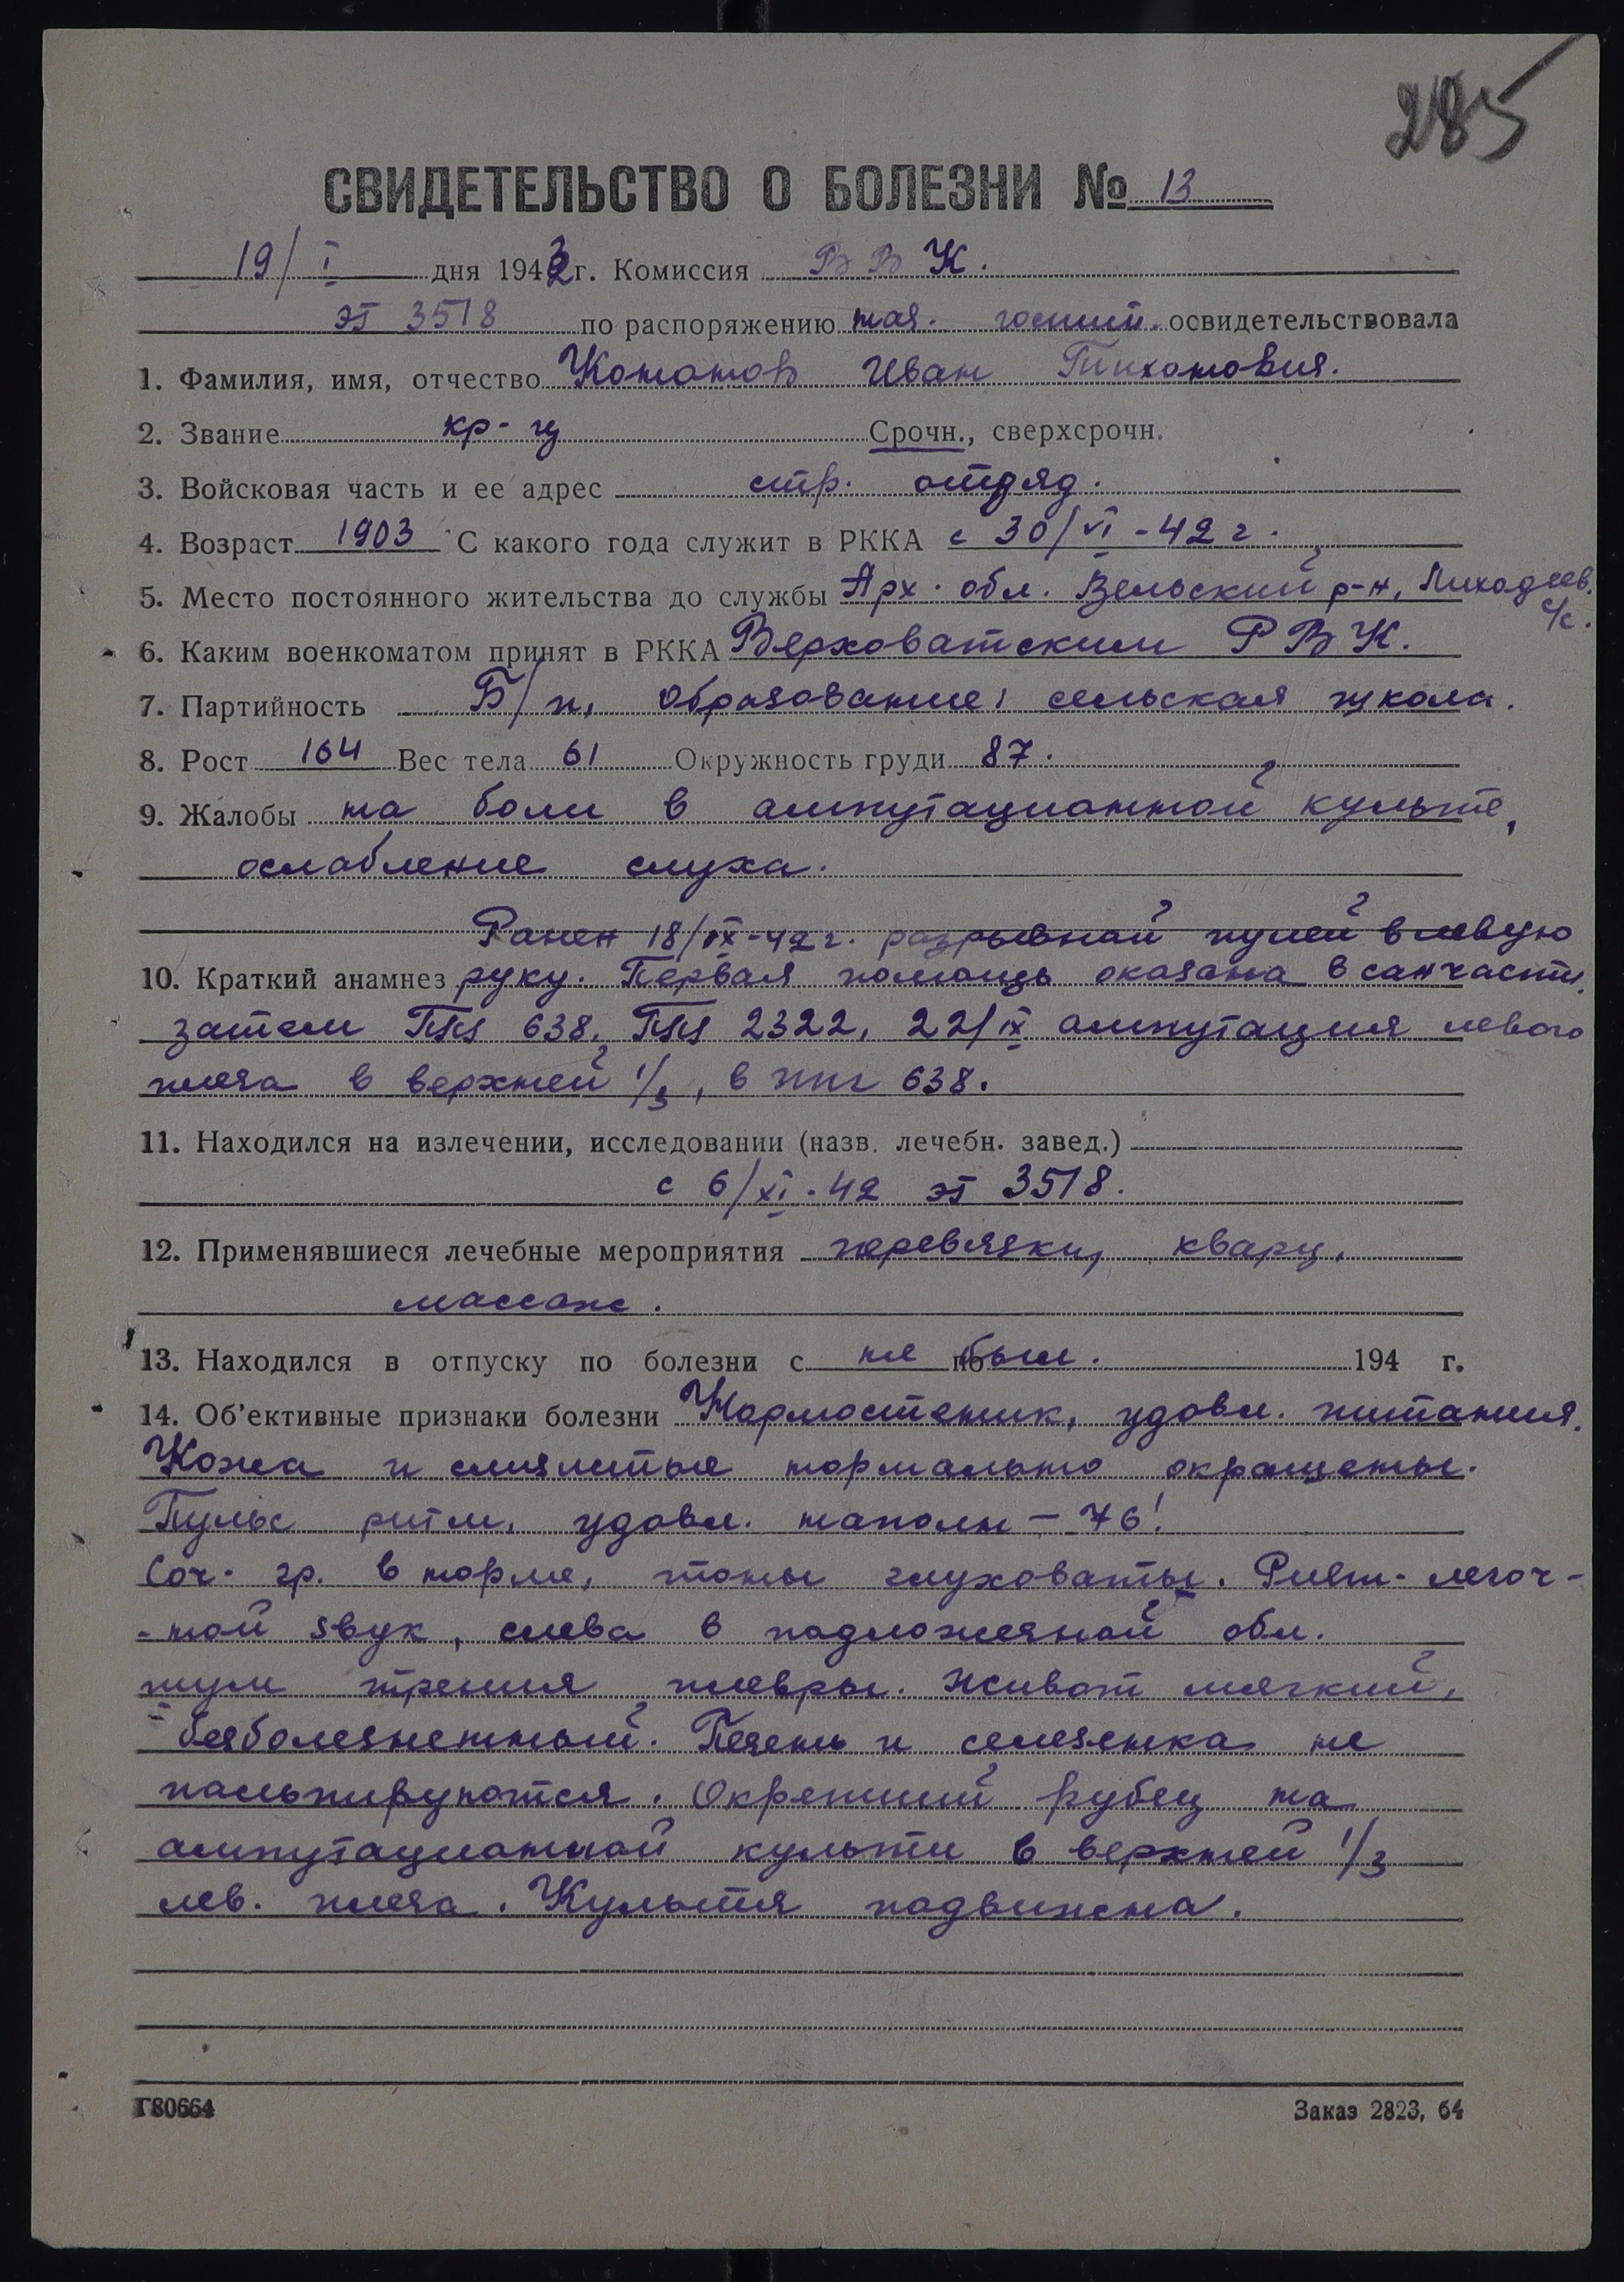 285
СВИДЕТЕЛЬСТВО О БОЛЕЗНИ № 13
19/I дня 1943 г. Комиссия ВВК.
ЭГ 3518 по распоряжению нач. госпит. освидетельствовала
1. Фамилия, имя, отчество Кононов Иван Тихонович.
2. Звание кр-ц Срочн., сверхсрочн.
3. Войсковая часть и ее адрес стр. отряд.
4. Возраст 1903 С какого года служит в РККА с 30/VI-42 г.
5. Место постоянного жительства до службы Арх. обл. Вельский р-н, Лиходиев. с/с.
6. Каким военкоматом принят в РККА Верховатским РВК.
7. Партийность Б/п, образование: сельская школа.
8. Рост 164 Вес тела 61 Окружность груди 87.
9. Жалобы на боли в ампутационной культе,
ослабление слуха.
Ранен 18/IX-42 г. разрывной пулей в левую
10. Краткий анамнез руку. Первая помощь оказана в санчасти,
затем ППГ 638, ППГ 2322, 22/IX ампутация левого
плеча в верхней 1/3, в ппг 638.
11. Находился на излечении, исследовании (назв. лечебн. завед.)
с 6/XI-42 ЭГ 3518.
12. Применявшиеся лечебные мероприятия перевязки, кварц,
массаж.
13. Находился в отпуску по болезни с не по был. 194 г.
14. Об'ективные признаки болезни Нормостеник, удовл. питания.
Кожа и слизистые нормально окрашены.
Пульс ритм. удовл. наполн – 76!
Сог. гр. в норме, тоны глуховаты. легоч-
-ной звук, слева в подложечной обл.
шум трения плевры. Живот мягкий,
безболезненный. Печень и селезенка не
пальпируются. Окрепший рубец на
ампутационной культи в верхней 1/3
лев. плеча. Культя подвижна.
Г80664 Заказ 2823, 64